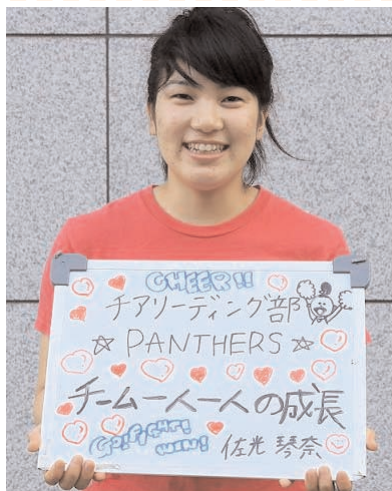 CHEER!!
チアリーディング部
☆ PANTHERS ☆
チーム一人一人の成長
GO! FIGHT!
WIN!
佐光 琴奈